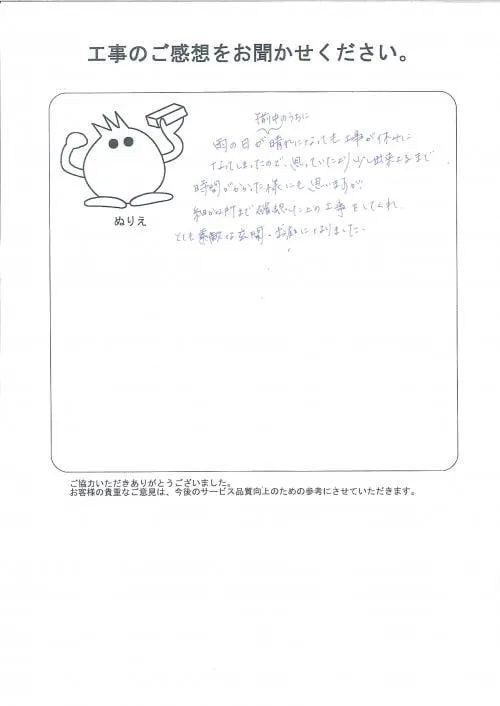 工事のご感想をお聞かせください。
午前中のうちに
雨の日が晴れになっても工事が休みに
なってしまったので、思っていたより少し出来上るまで
時間がかかった様にも思いますが、
細かな所まで確認した上の工事をしてくれ、
とても素敵な玄関・お庭になりました。
ぬりえ
ご協力いただきありがとうございました。
お客様の貴重なご意見は、今後のサービス品質向上のための参考にさせていただきます。